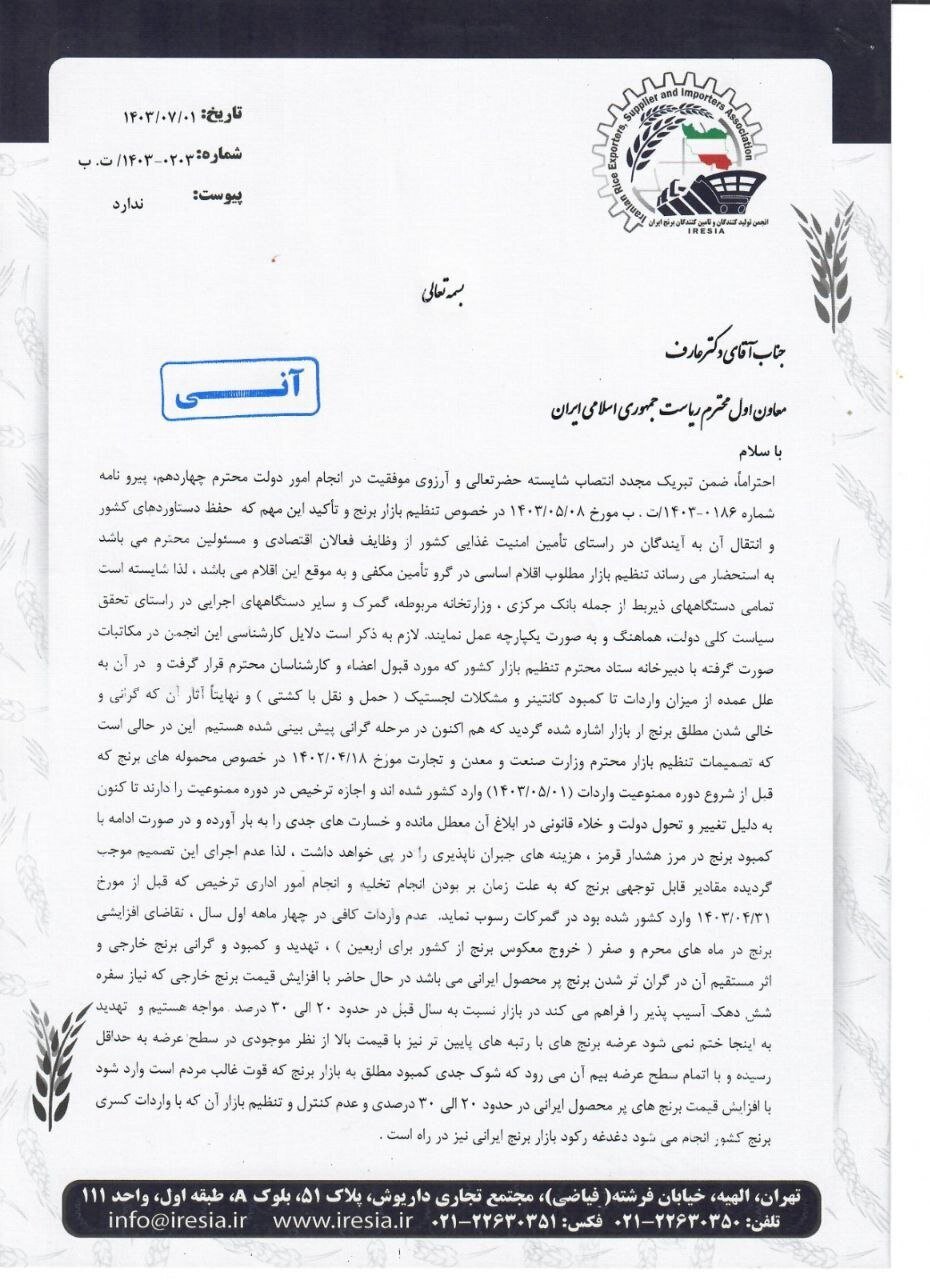 تاریخ: ۱۴۰۳/۰۷/۰۱
شماره: ۰۲۰۳-۱۴۰۳/ ت. ب
پیوست: ندارد
Iranian Rice Exporters, Supplier and Importers Association
انجمن تولید کنندگان و تامین کنندگان برنج ایران
IRESIA
بسمه تعالی
جناب آقای دکتر عارف
آنـــی
معاون اول محترم ریاست جمهوری اسلامی ایران
با سلام
احتراماً، ضمن تبریک مجدد انتصاب شایسته حضرتعالی و آرزوی موفقیت در انجام امور دولت محترم چهاردهم، پیرو نامه
شماره ۰۱۸۶-۱۴۰۳/ت . ب مورخ ۱۴۰۳/۰۵/۰۸ در خصوص تنظیم بازار برنج و تأکید این مهم که حفظ دستاوردهای کشور
و انتقال آن به آیندگان در راستای تأمین امنیت غذایی کشور از وظایف فعالان اقتصادی و مسئولین محترم می باشد
به استحضار می رساند تنظیم بازار مطلوب اقلام اساسی در گرو تأمین مکفی و به موقع این اقلام می باشد ، لذا شایسته است
تمامی دستگاههای ذیربط از جمله بانک مرکزی ، وزارتخانه مربوطه، گمرک و سایر دستگاههای اجرایی در راستای تحقق
سیاست کلی دولت، هماهنگ و به صورت یکپارچه عمل نمایند. لازم به ذکر است دلایل کارشناسی این انجمن در مکاتبات
صورت گرفته با دبیرخانه ستاد محترم تنظیم بازار کشور که مورد قبول اعضاء و کارشناسان محترم قرار گرفت و در آن به
علل عمده از میزان واردات تا کمبود کانتینر و مشکلات لجستیک ( حمل و نقل با کشتی ) و نهایتاً آثار آن که گرانی و
خالی شدن مطلق برنج ار بازار اشاره شده گردید که هم اکنون در مرحله گرانی پیش بینی شده هستیم این در حالی است
که تصمیمات تنظیم بازار محترم وزارت صنعت و معدن و تجارت مورخ ۱۴۰۲/۰۴/۱۸ در خصوص محموله های برنج که
قبل از شروع دوره ممنوعیت واردات (۱۴۰۳/۰۵/۰۱) وارد کشور شده اند و اجازه ترخیص در دوره ممنوعیت را دارند تا کنون
به دلیل تغییر و تحول دولت و خلاء قانونی در ابلاغ آن معطل مانده و خسارت های جدی را به بار آورده و در صورت ادامه با
کمبود برنج در مرز هشدار قرمز ، هزینه های جبران ناپذیری را در پی خواهد داشت ، لذا عدم اجرای این تصمیم موجب
گردیده مقادیر قابل توجهی برنج که به علت زمان بر بودن انجام تخلیه و انجام امور اداری ترخیص که قبل از مورخ
۱۴۰۳/۰۴/۳۱ وارد کشور شده بود در گمرکات رسوب نماید. عدم واردات کافی در چهار ماهه اول سال ، تقاضای افزایشی
برنج در ماه های محرم و صفر ( خروج معکوس برنج از کشور برای اربعین ) ، تهدید و کمبود و گرانی برنج خارجی و
اثر مستقیم آن در گران تر شدن برنج پر محصول ایرانی می باشد در حال حاضر با افزایش قیمت برنج خارجی که نیاز سفره
شش دهک آسیب پذیر را فراهم می کند در بازار نسبت به سال قبل در حدود ۲۰ الی ۳۰ درصد مواجه هستیم و تهدید
به اینجا ختم نمی شود عرضه برنج های با رتبه های پایین تر نیز با قیمت بالا از نظر موجودی در سطح عرضه به حداقل
رسیده و با اتمام سطح عرضه بیم آن می رود که شوک جدی کمبود مطلق به بازار برنج که قوت غالب مردم است وارد شود
با افزایش قیمت برنج های پر محصول ایرانی در حدود ۲۰ الی ۳۰ درصدی و عدم کنترل و تنظیم بازار آن که با واردات کسری
برنج کشور انجام می شود دغدغه رکود بازار برنج ایرانی نیز در راه است .
تهران، الهیه، خیابان فرشته( فیاضی)، مجتمع تجاری داریوش، پلاک ۵۱، بلوک A، طبقه اول، واحد ۱۱۱
تلفن: ۲۲۶۳۰۳۵۰-۰۲۱ فکس: ۲۲۶۳۰۳۵۱-۰۲۱ www.iresia.ir info@iresia.ir